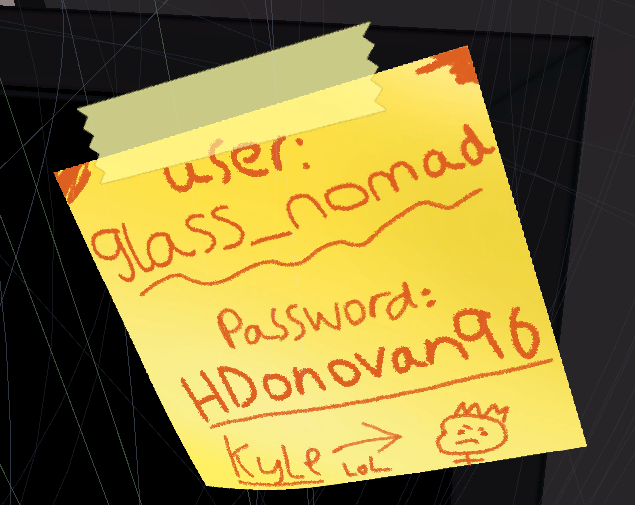 user:
glass_nomad
Password:
HDonovan96
Kyle
LOL